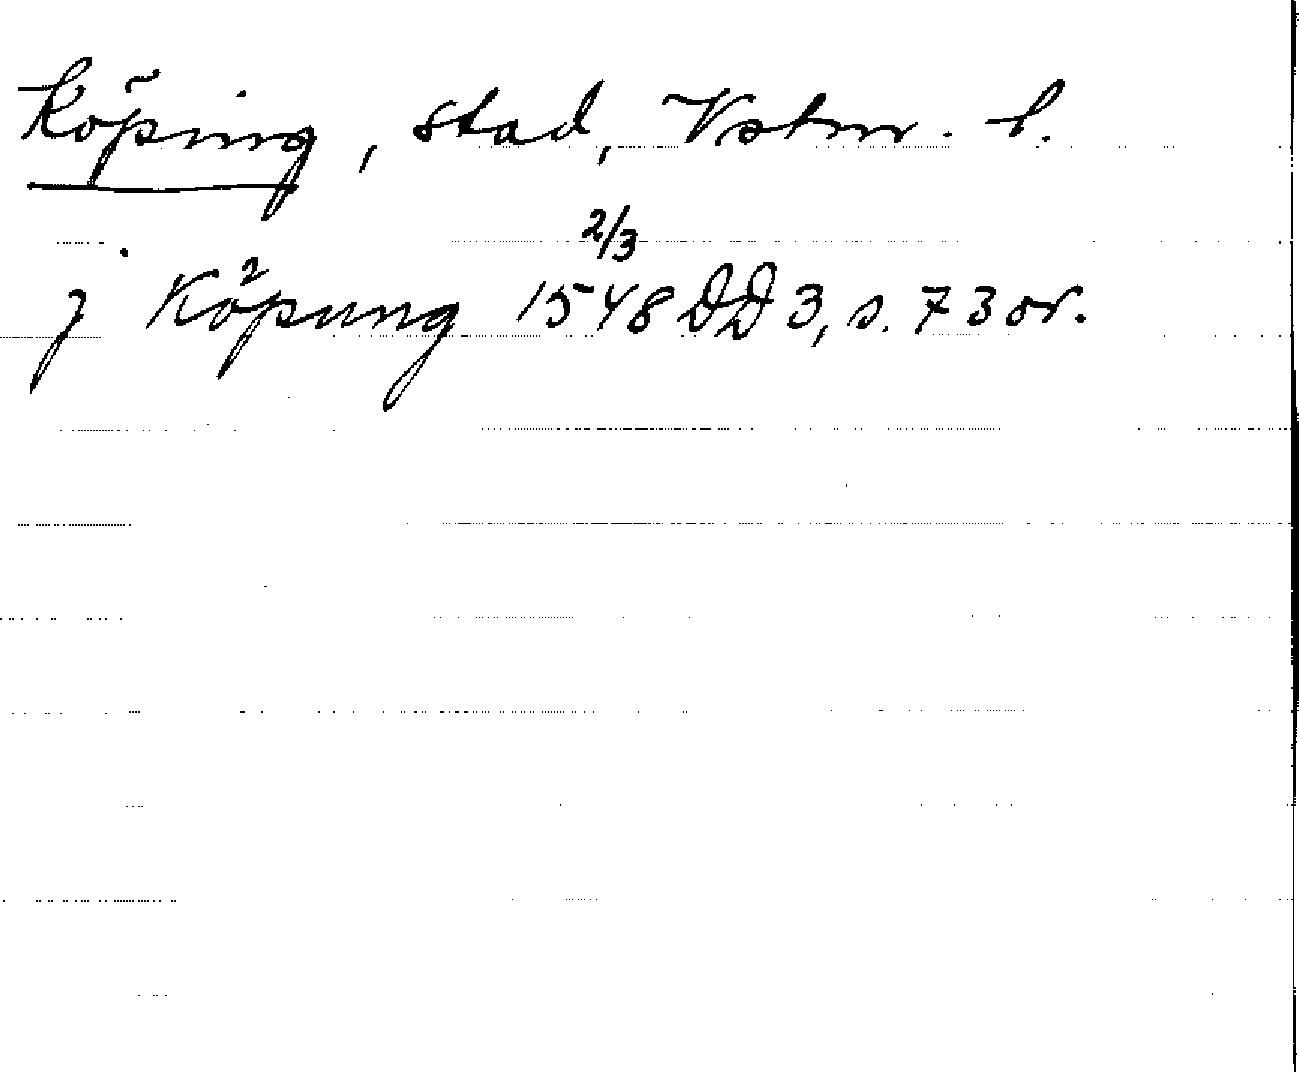 Köping, stad, Vstm. l.
j Köpung 1548 2/3 DD 3, s. 73 or.